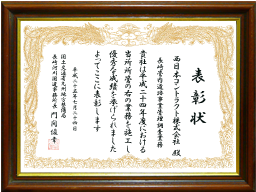 表彰状
西日本コントラクト株式会社 殿
長崎管内道路事業管理調査業務
貴社は平成二十四年度における
当所所管の右の業務を施工し
優秀な成績を挙げられました
よってここに表彰します
平成二十五年七月二十四日
国土交通省九州地方整備局
長崎河川国道事務所長